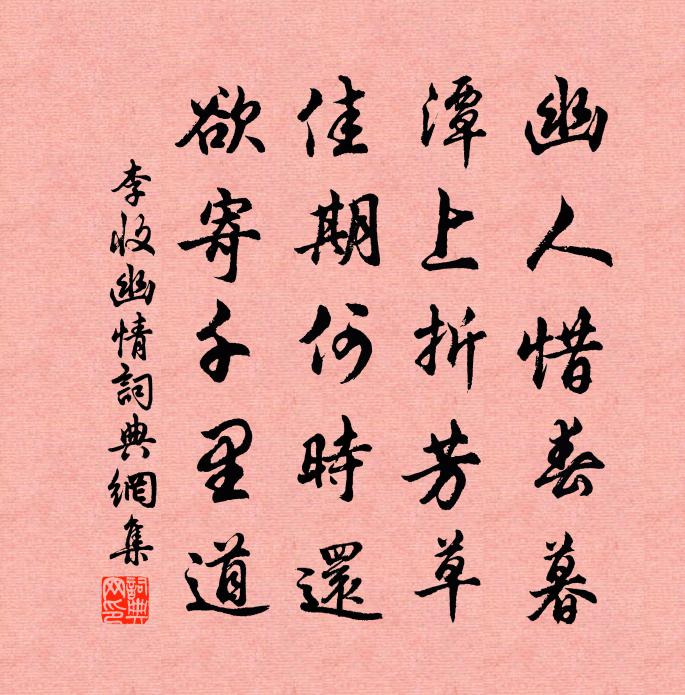 幽人惜春暮
潭上折芳草
佳期何時還
欲寄千里道
李收幽情詞典網集
詞典网印